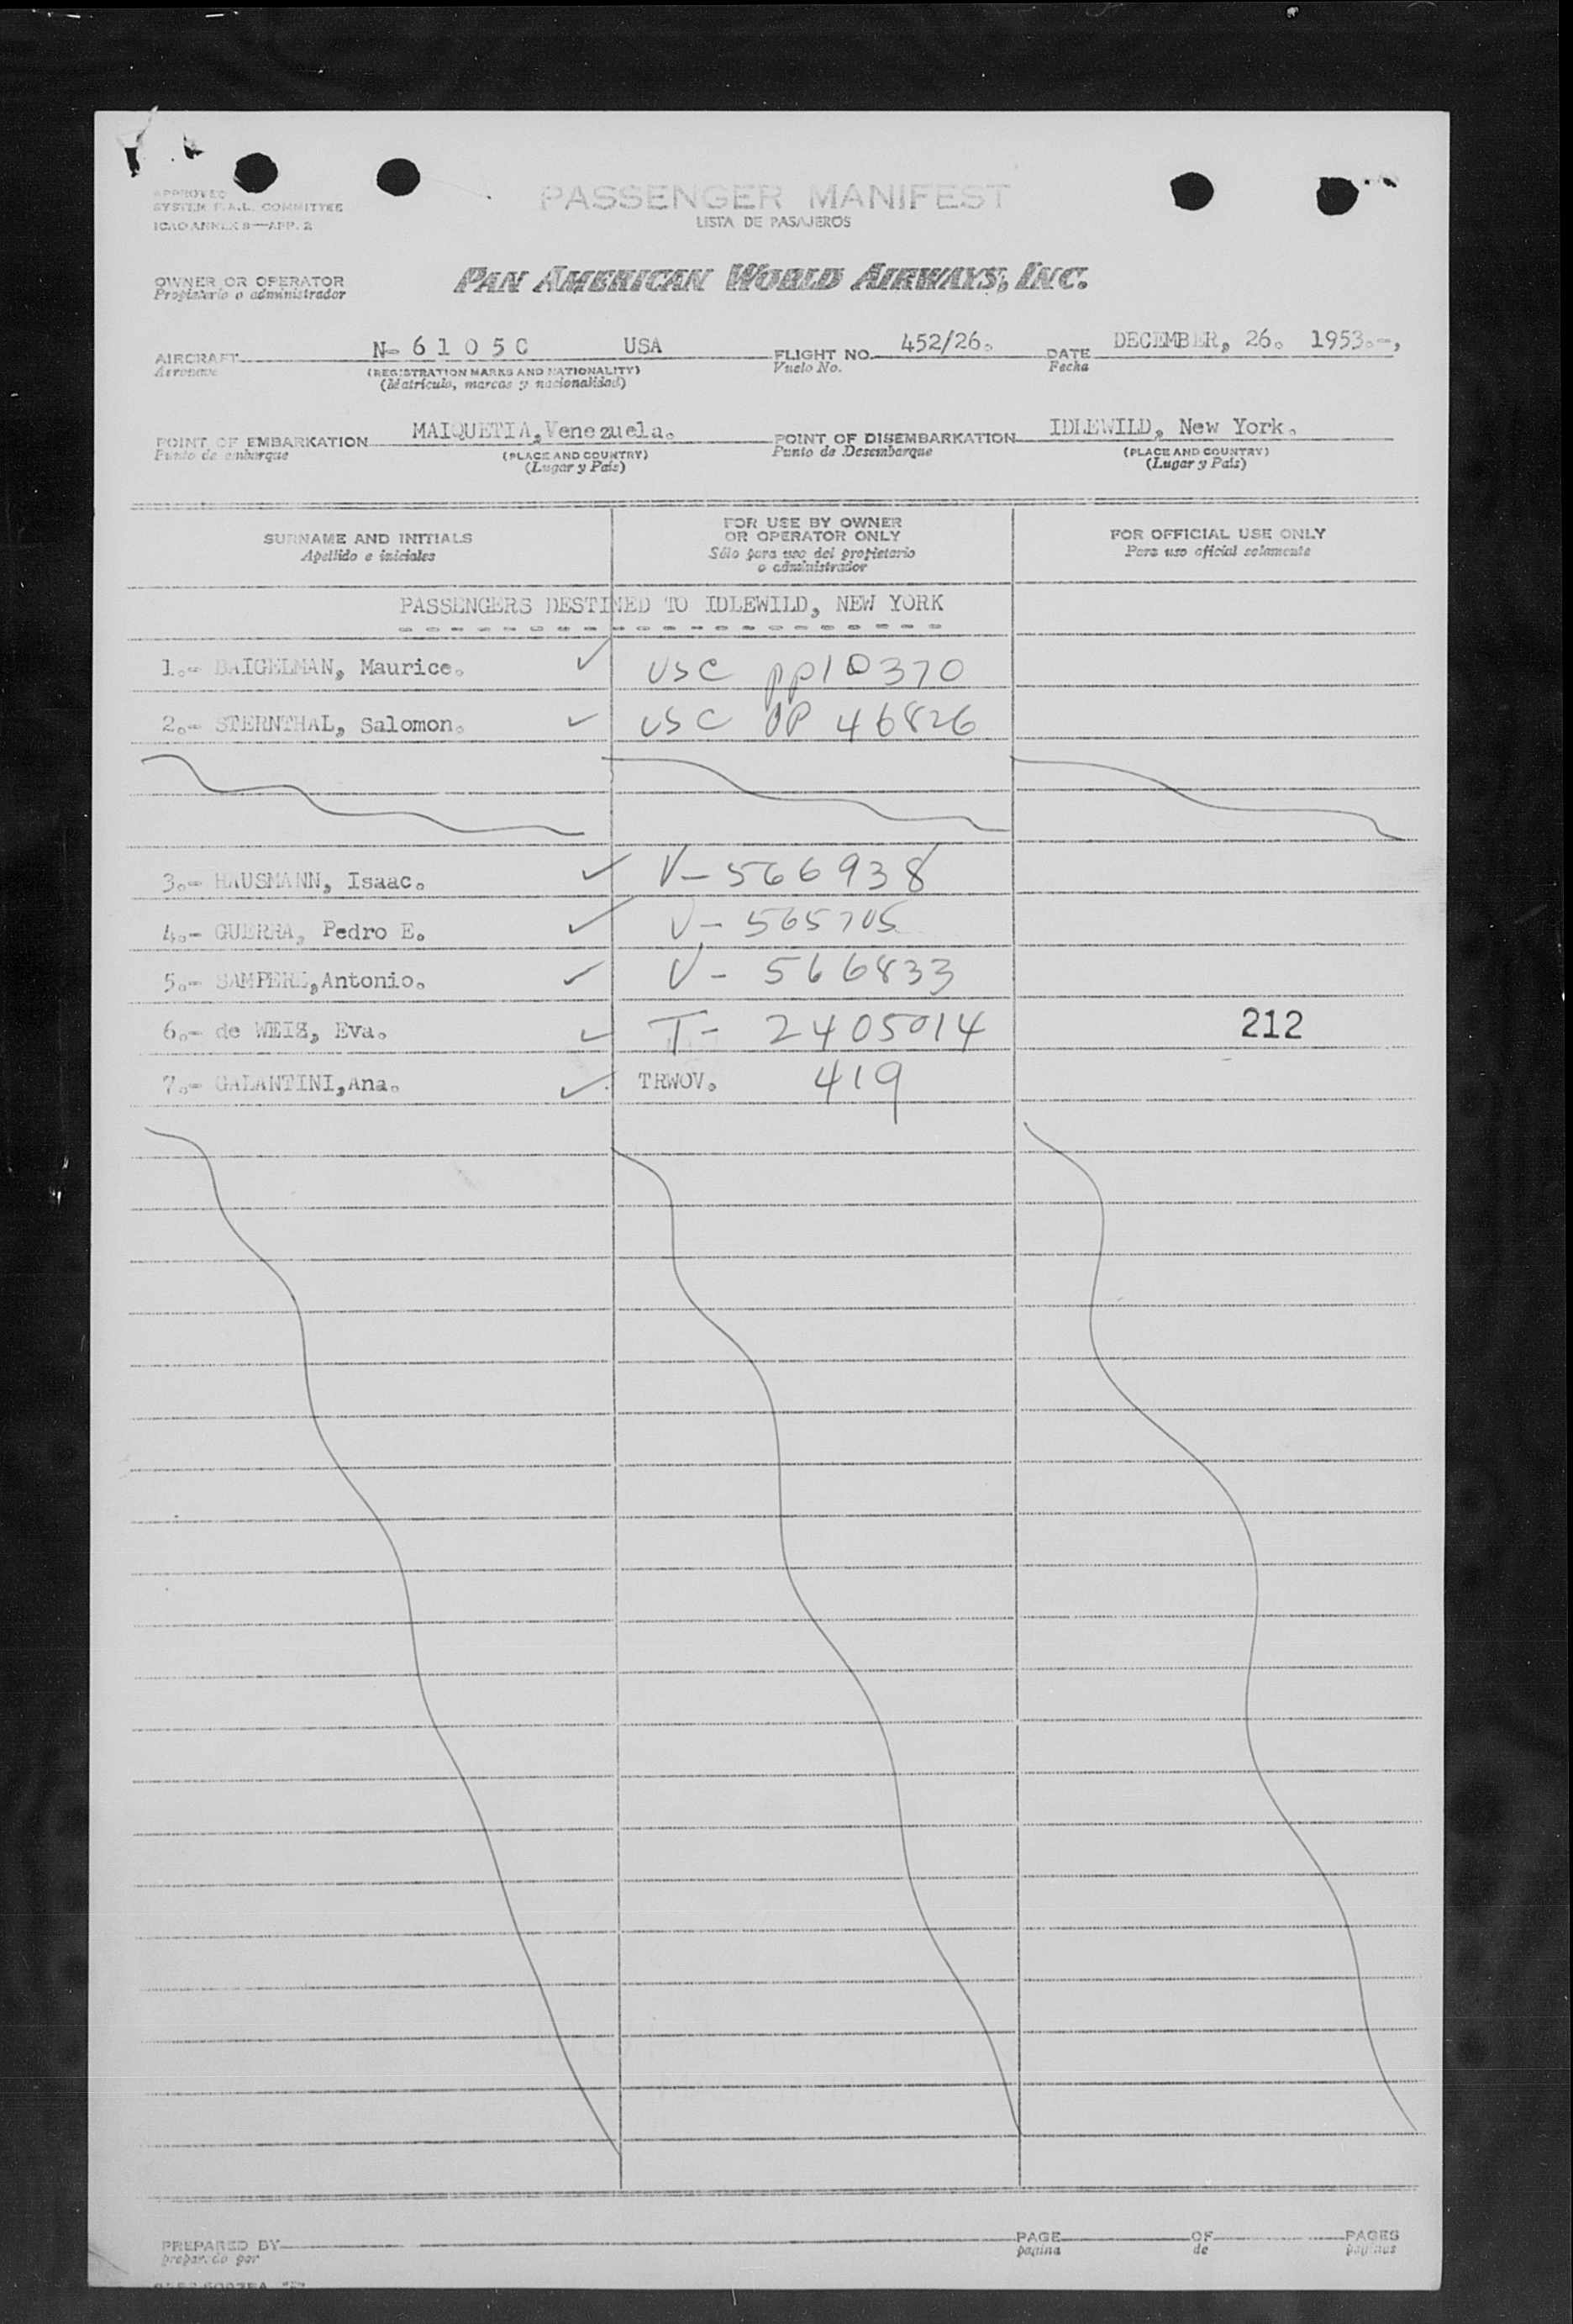 APPROVED
SYSTEM F.A.L. COMMITTEE
ICAO ANNEX 9—APP. 2
PASSENGER MANIFEST
LISTA DE PASAJEROS
OWNER OR OPERATOR
Propietario o administrador
PAN AMERICAN WORLD AIRWAYS, INC.
AIRCRAFT N- 6 1 0 5 C USA FLIGHT NO. 452/26. DATE DECEMBER, 26. 1953.-,
Aeronave (REGISTRATION MARKS AND NATIONALITY) Vuelo No. Fecha
(Matrícula, marcas y nacionalidad)
POINT OF EMBARKATION MAIQUETIA,Venezuela. POINT OF DISEMBARKATION IDLEWILD, New York.
Punto de embarque (PLACE AND COUNTRY) Punto de Desembarque (PLACE AND COUNTRY)
(Lugar y País) (Lugar y País)
SURNAME AND INITIALS
Apellido e iniciales
FOR USE BY OWNER
OR OPERATOR ONLY
Sólo para uso del propietario
o administrador
FOR OFFICIAL USE ONLY
Para uso oficial solamente
PASSENGERS DESTINED TO IDLEWILD, NEW YORK
1.- BAIGELMAN, Maurice. ✓ USC pp10370
2.- STERNTHAL, Salomon. ✓ USC PP 46826
3.- HAUSMANN, Isaac. ✓ V-566938
4.- GUERRA, Pedro E. ✓ V-565705
5.- SAMPERE,Antonio. ✓ V- 566833
6.- de WEISZ, Eva. ✓ T- 2405014 212
7.- GALANTINI,Ana. ✓ TRWOV. 419
PREPARED BY PAGE OF PAGES
preparado por pagina de paginas